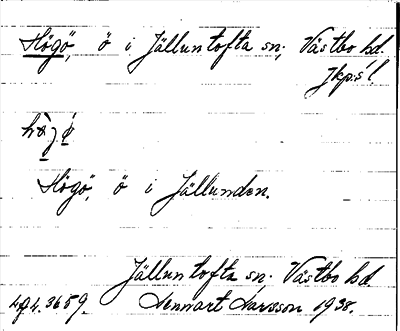 Högö, ö i Jälluntofta sn; Västbo hd.
Jkp:s l
Högö, ö i Jällunden.
Jälluntofta sn. Västbo hd.
Lennart Larsson 1938.